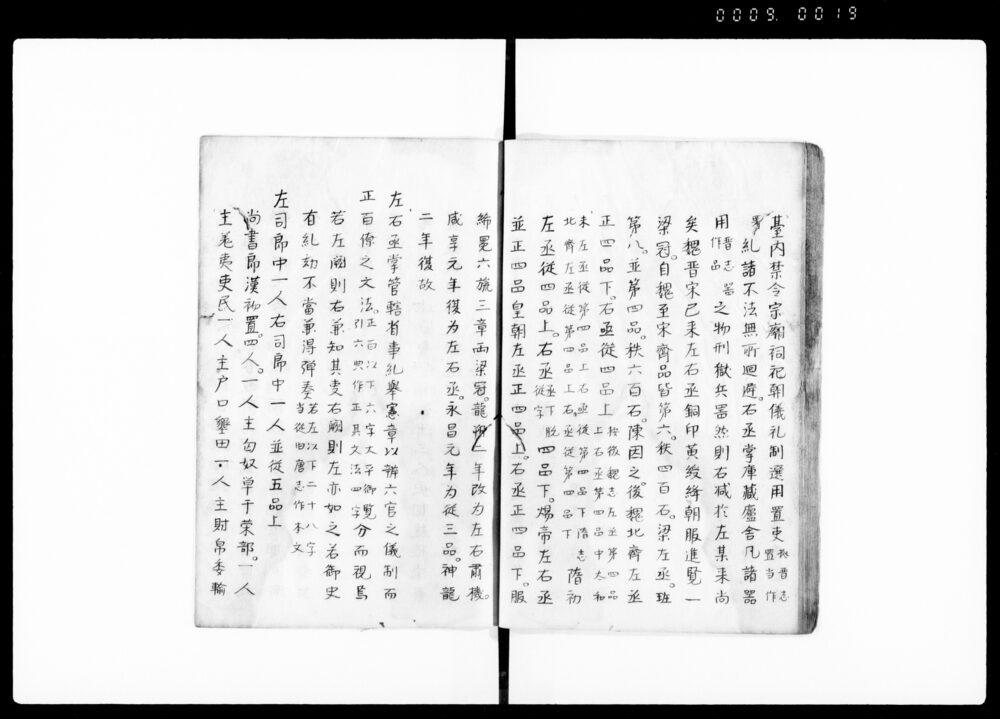 0009. 0019
臺内禁令宗廟祠祀朝儀礼制選用置吏 按晋志置当作
署 糺諸不法無所廻避。右丞掌庫藏廬舎凡諸器
用 晋志器作品 之物刑獄兵器然則右减於左某来尚
矣魏晋宋已来左右丞銅印黄綬絳朝服進覧一
梁冠。自魏至宋齊品皆第六。秩四百石。梁左丞。班
第八。並第四品。秩六百石。陳因之。後魏北齊左丞
正四品下。右丞從四品上 按後魏志左丞第四品上右丞第四品中太和
末左丞從第四品上右丞從第四品下隋志
北齊左丞從第四品上右丞從第四品下 隋初
左丞從四品上。右丞 丞下脱從字 四品下。煬帝左右丞
並正四品皇朝左丞正四品上。右丞正四品下。服
絺冕六旒三章両梁冠。龍朔二年改為左右肅機。
咸享元年復為左右丞。永昌元年為従三品。神龍
二年復故
左右丞掌管轄省事糺舉憲章以辨六官之儀制而
正百僚之文法。 正百以下六字太平御覧引六典作正其文法四字 分而視焉
若左闕則右兼知其吏右闕則左亦如之若御史
有糺劾不當兼得彈奏 若左以下二十八字当從旧唐志作本文
左司郎中一人右司郎中一人並從五品上
尚書郎漢初置。四人。一人主匈奴単于栄部。一人
主羗夷吏民一人主户口墾田一人主財帛委輸